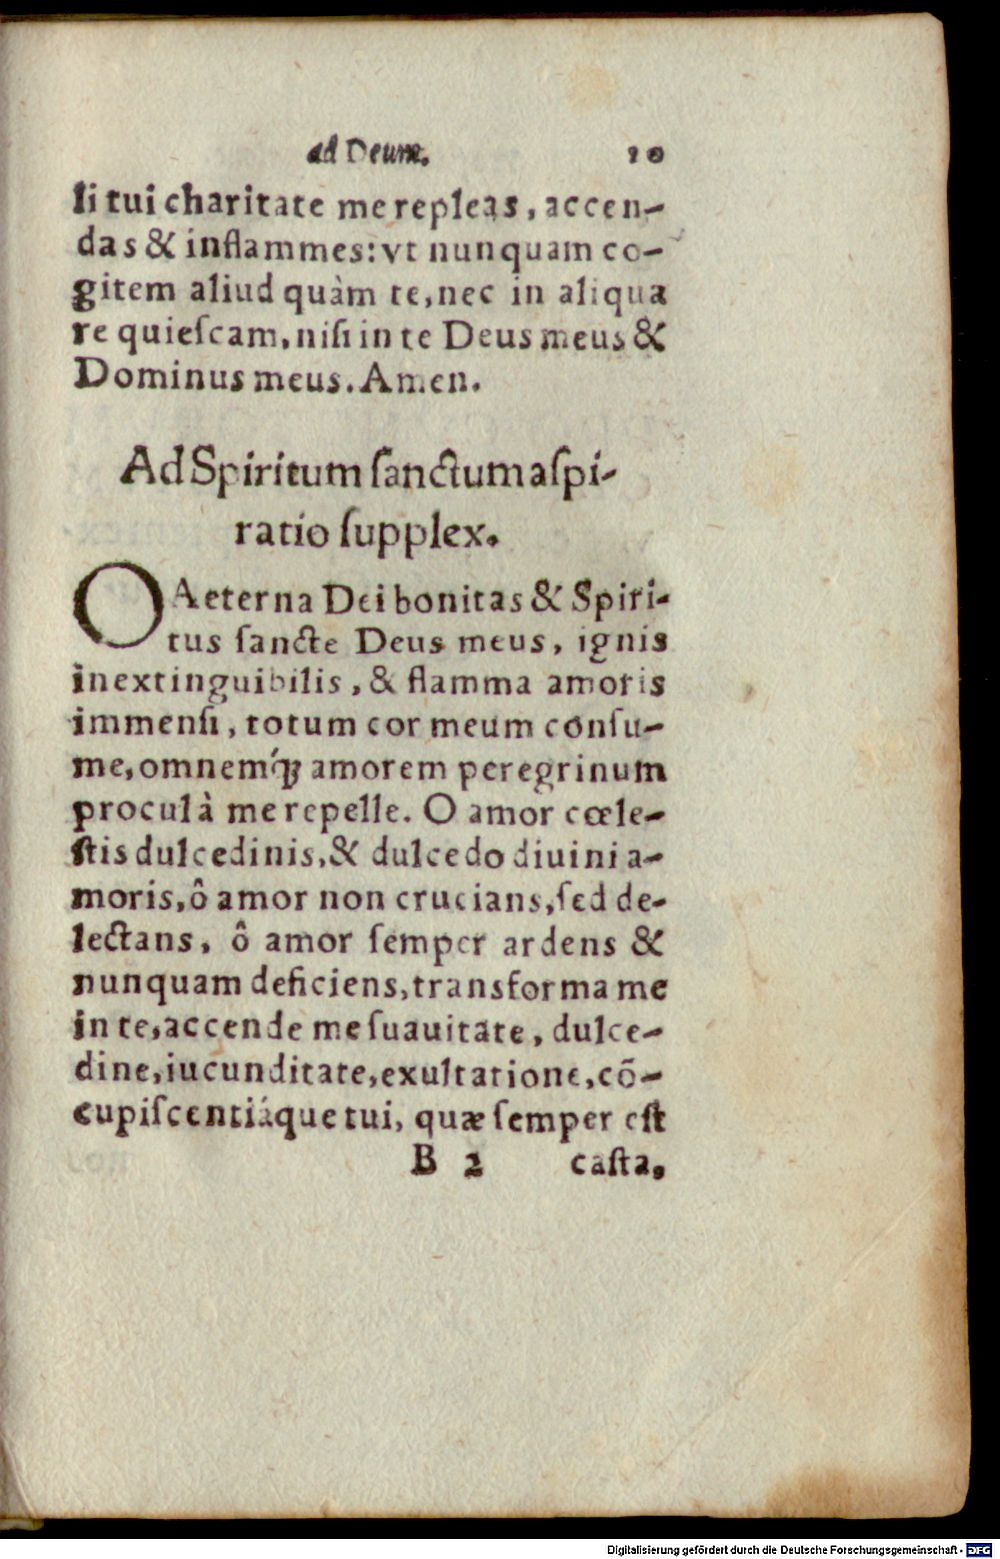 ad Deum. 10
li tui charitate me repleas, accen-
das & inflammes: vt nunquam co-
gitem aliud quàm te, nec in aliqua
re quieſcam, niſi in te Deus meus &
Dominus meus. Amen.
Ad Spiritum ſanctum aſpi-
ratio ſupplex.
O Aeterna Dei bonitas & Spiri-
tus ſancte Deus meus, ignis
inextinguibilis, & flamma amoris
immenſi, totum cor meum conſu-
me, omnemq́; amorem peregrinum
procul à me repelle. O amor cœle-
ſtis dulcedinis, & dulcedo diuini a-
moris, ô amor non crucians, ſed de-
lectans, ô amor ſemper ardens &
nunquam deficiens, transforma me
in te, accende me ſuauitate, dulce-
dine, iucunditate, exultatione, cõ-
cupiſcentiáque tui, quæ ſemper eſt
B 2 caſta,
Digitalisierung gefördert durch die Deutsche Forschungsgemeinschaft - DFG